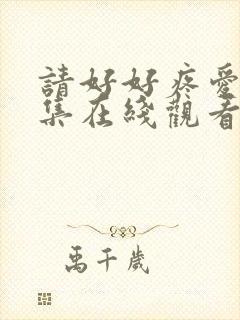 請好好疼愛
集在綫觀看
禹千歲